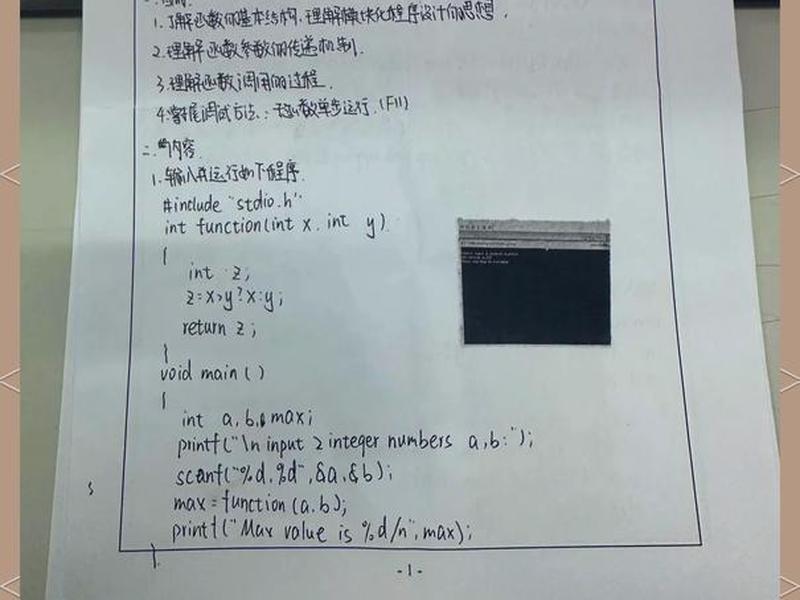 1. 了解函数的基本结构,理解模块化程序设计的思想.
2.理解函数参数的传递机制.
3.理解函数调用的过程.
4.掌握调试方法:函数单步运行.(F11)
二.内容.
1.输入并运行如下程序.
#include "stdio.h"
int function(int x, int y)
{
int z;
z=x>y?x:y;
return z;
}
void main()
{
int a,b,max;
printf("\n input 2 integer numbers a,b:");
scanf("%d,%d",&a,&b);
max=function(a,b);
printf("Max value is %d/n",max);
}
-1-